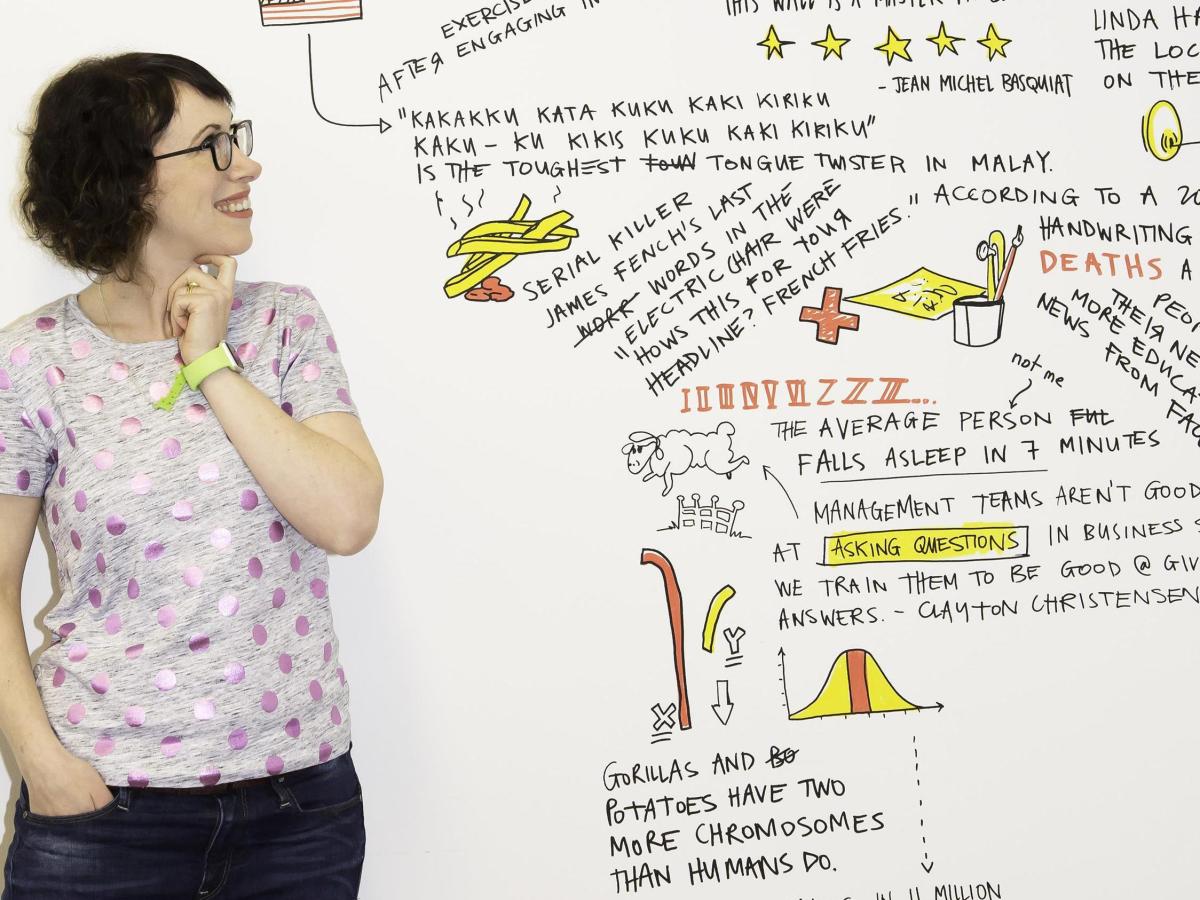 EXERCISE
AFTER ENGAGING IN
THIS WALL IS A MASTER
- JEAN MICHEL BASQUIAT
LINDA HA
THE LOC
ON THE
"KAKAKKU KATA KUKU KAKI KIRIKU
KAKU- KU KIKIS KUKU KAKI KIRIKU"
IS THE TOUGHEST TOUN TONGUE TWISTER IN MALAY.
SERIAL KILLER
JAMES FENCH'S LAST
WORK WORDS IN THE
"ELECTRIC CHAIR WERE
"HOWS THIS FOR YOUR
HEADLINE? FRENCH FRIES."
" ACCORDING TO A 20
HANDWRITING
DEATHS A
PEOP
THEIR NE
MORE EDUCA
NEWS FROM FAC
not me
I II III IV V VI Z Z Z ZZ...
THE AVERAGE PERSON FUL
FALLS ASLEEP IN 7 MINUTES
MANAGEMENT TEAMS AREN'T GOOD
AT ASKING QUESTIONS IN BUSINESS S
WE TRAIN THEM TO BE GOOD @ GIV
ANSWERS. - CLAYTON CHRISTENSEN
Y
X
GORILLAS AND BO
POTATOES HAVE TWO
MORE CHROMOSOMES
THAN HUMANS DO.
IN 11 MILLION